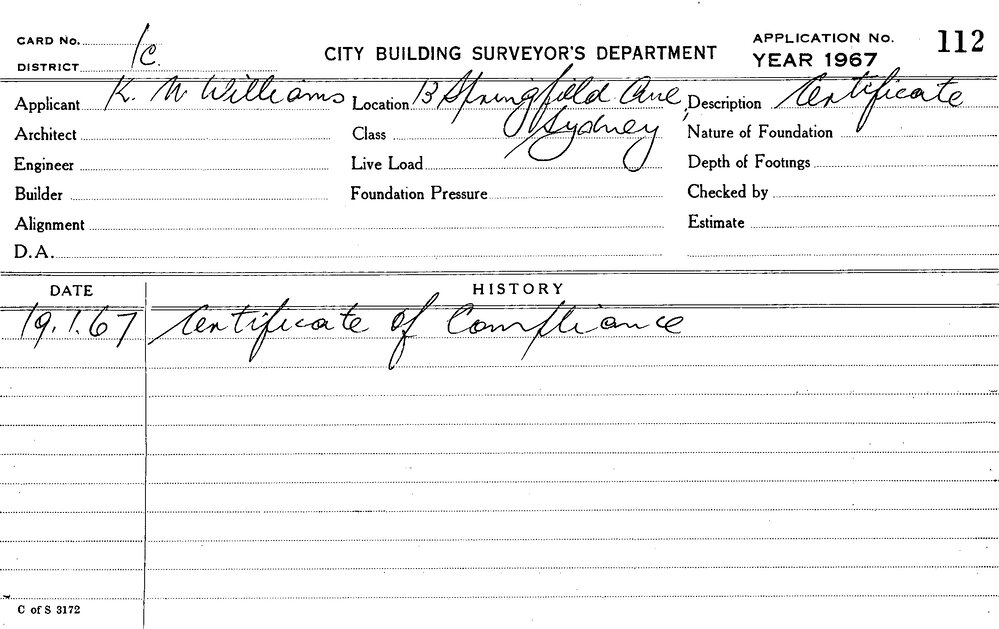 CARD No. 1c.
DISTRICT
CITY BUILDING SURVEYOR'S DEPARTMENT
APPLICATION No. 112
YEAR 1967
Applicant K. W Williams Location 13 Springfield Ave, Sydney Description Certificate
Architect Class Nature of Foundation
Engineer Live Load Depth of Footings
Builder Foundation Pressure Checked by
Alignment Estimate
D.A.
DATE HISTORY
19.1.67 Certificate of Compliance
C of S 3172